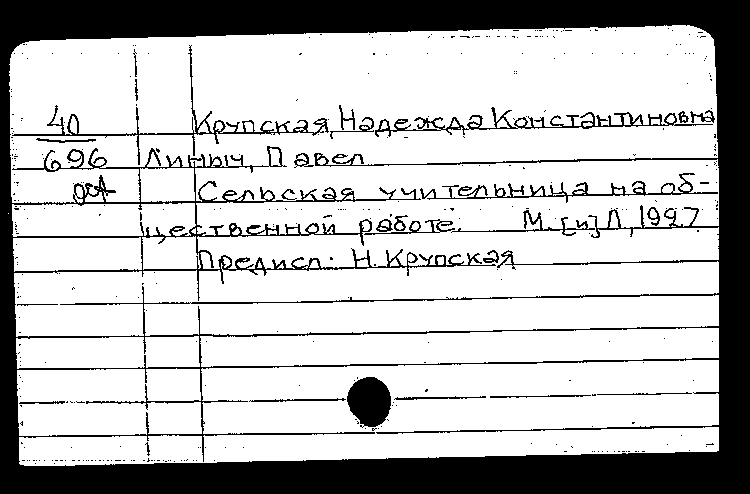 40 Крупская, Надежда Константиновна
696 Линыч, Павел
Сельская учительница на об-
щественной работе. М. [и] Л, 1927
Предисл: Н. Крупская